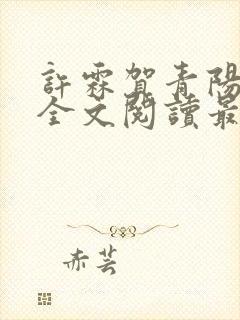 許霖賀青陽
全文閱讀最
赤芸